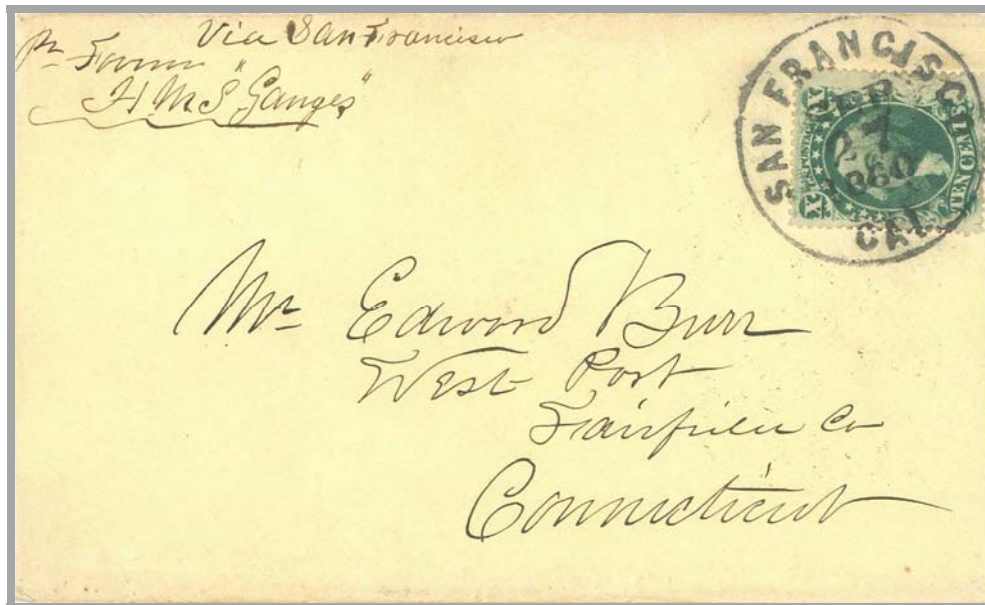 Via San Francisco
Pr Favor
"H.M.S. Ganges"
SAN FRANCISCO
7
1860
CAL
X
X
TEN CENTS
Mr Edward Burr
West Port
Fairfield Co
Connecticut